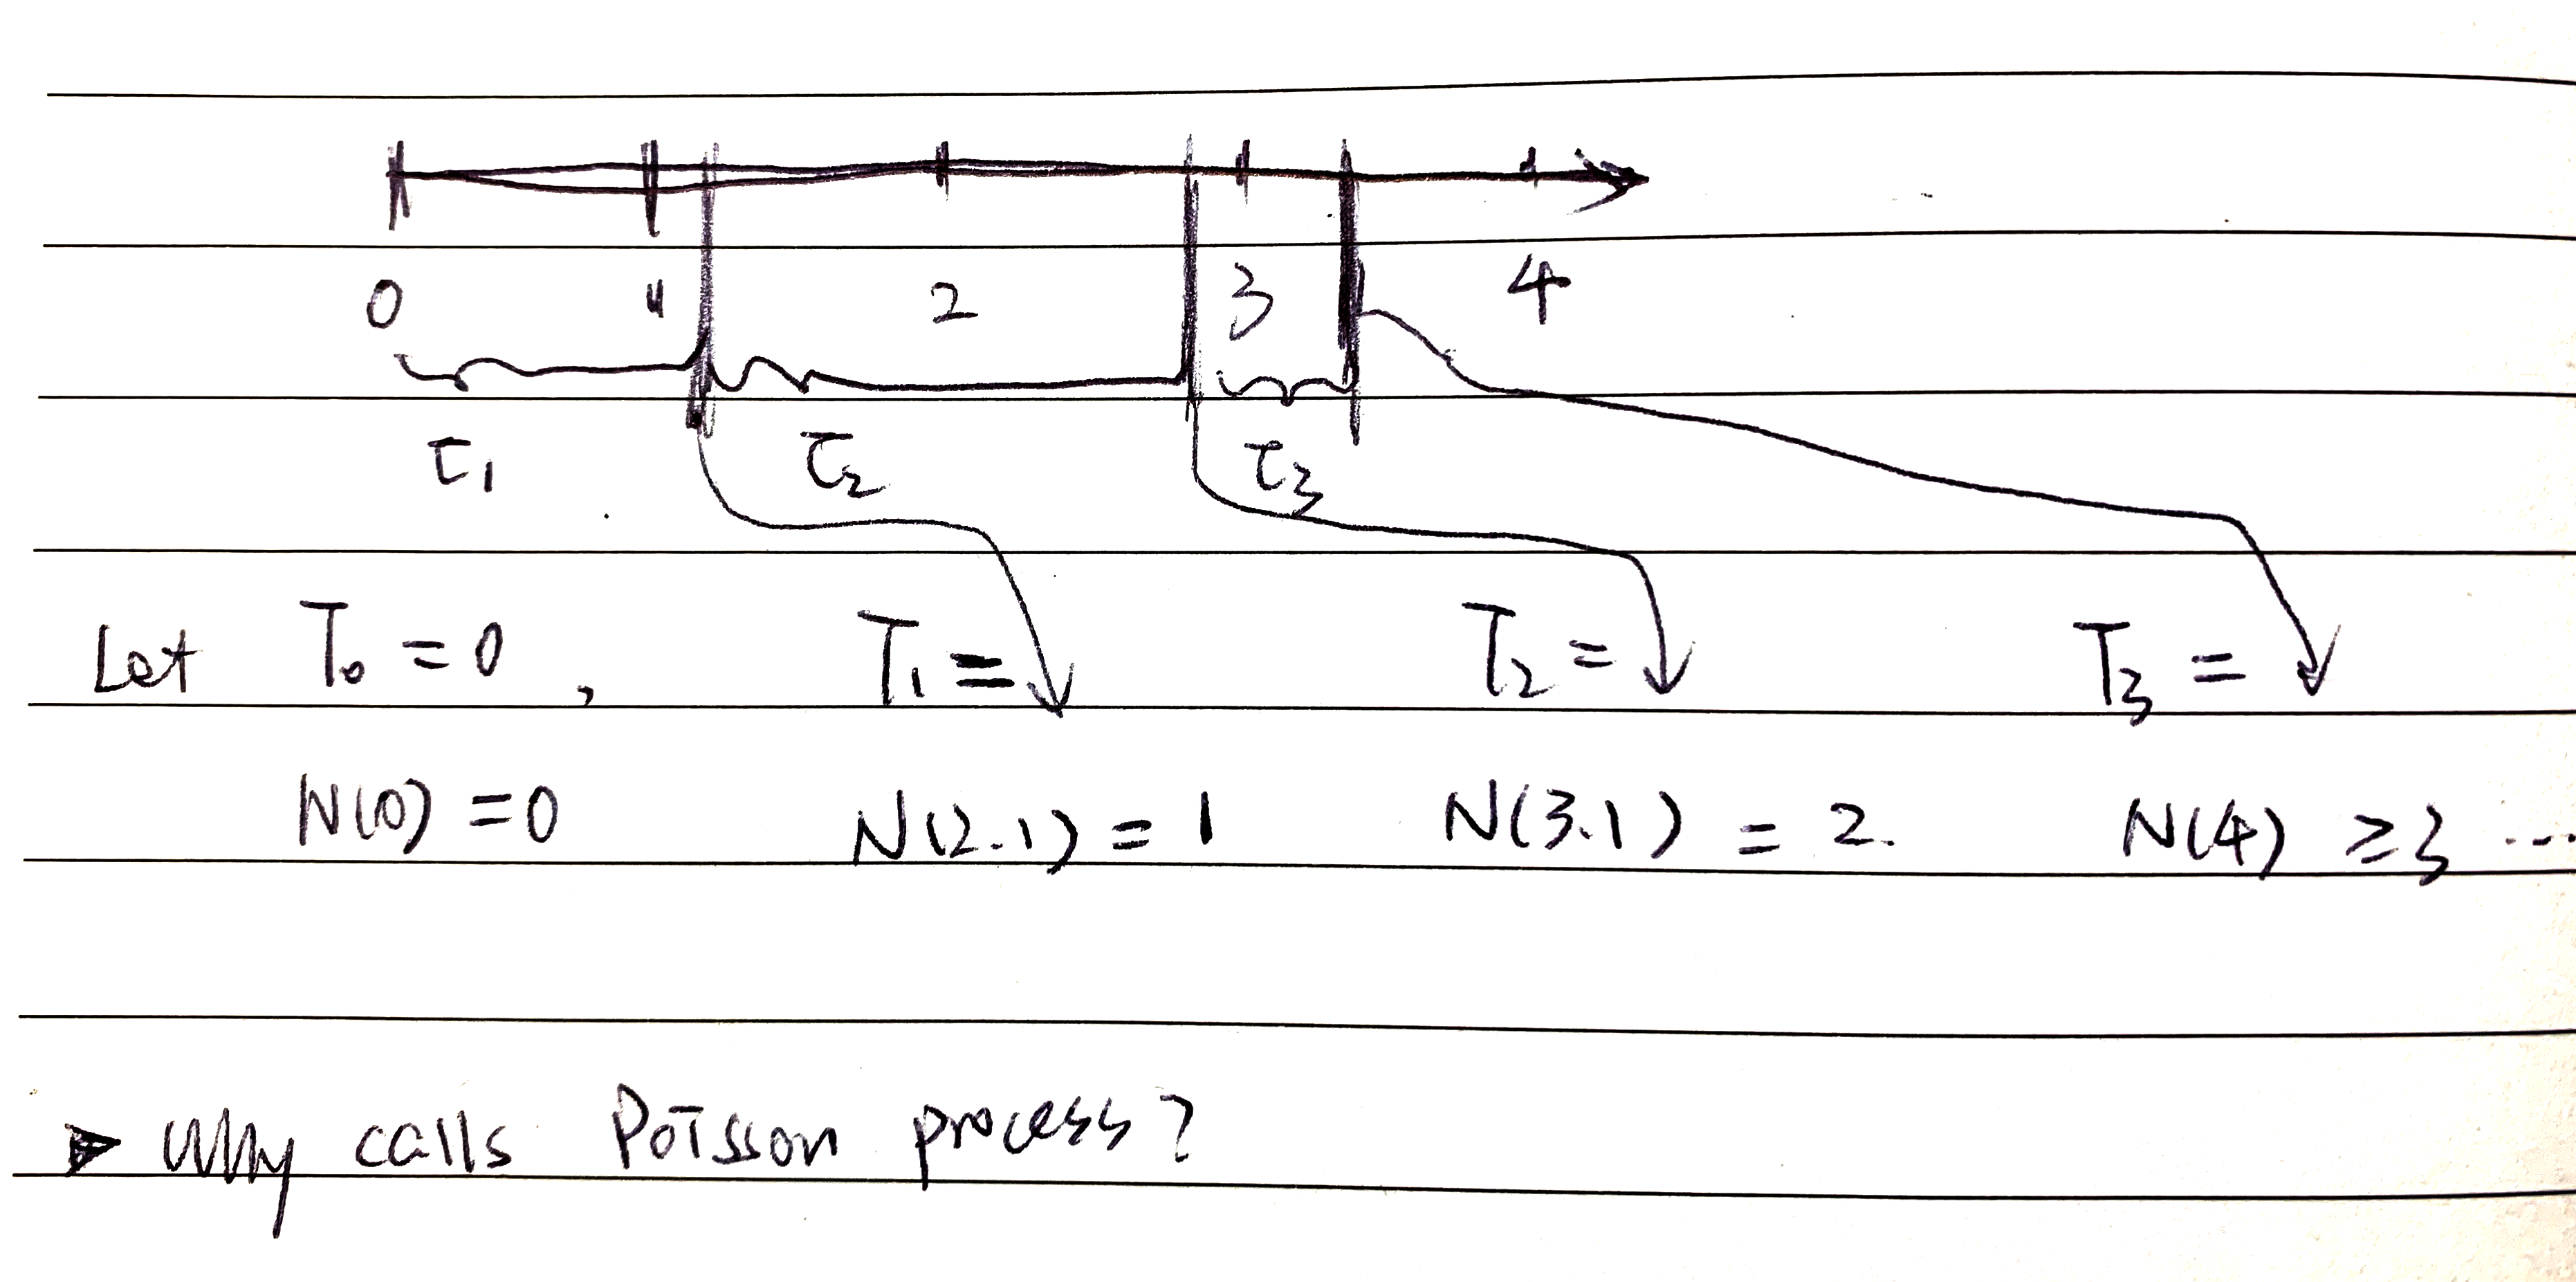 0 1 2 3 4
τ₁ τ₂ τ₃
Let T₀ = 0 , T₁ = T₂ = T₃ =
N(0) = 0 N(2.1) = 1 N(3.1) = 2. N(4) ≥ 3 ...
▶ Why calls Poisson process?